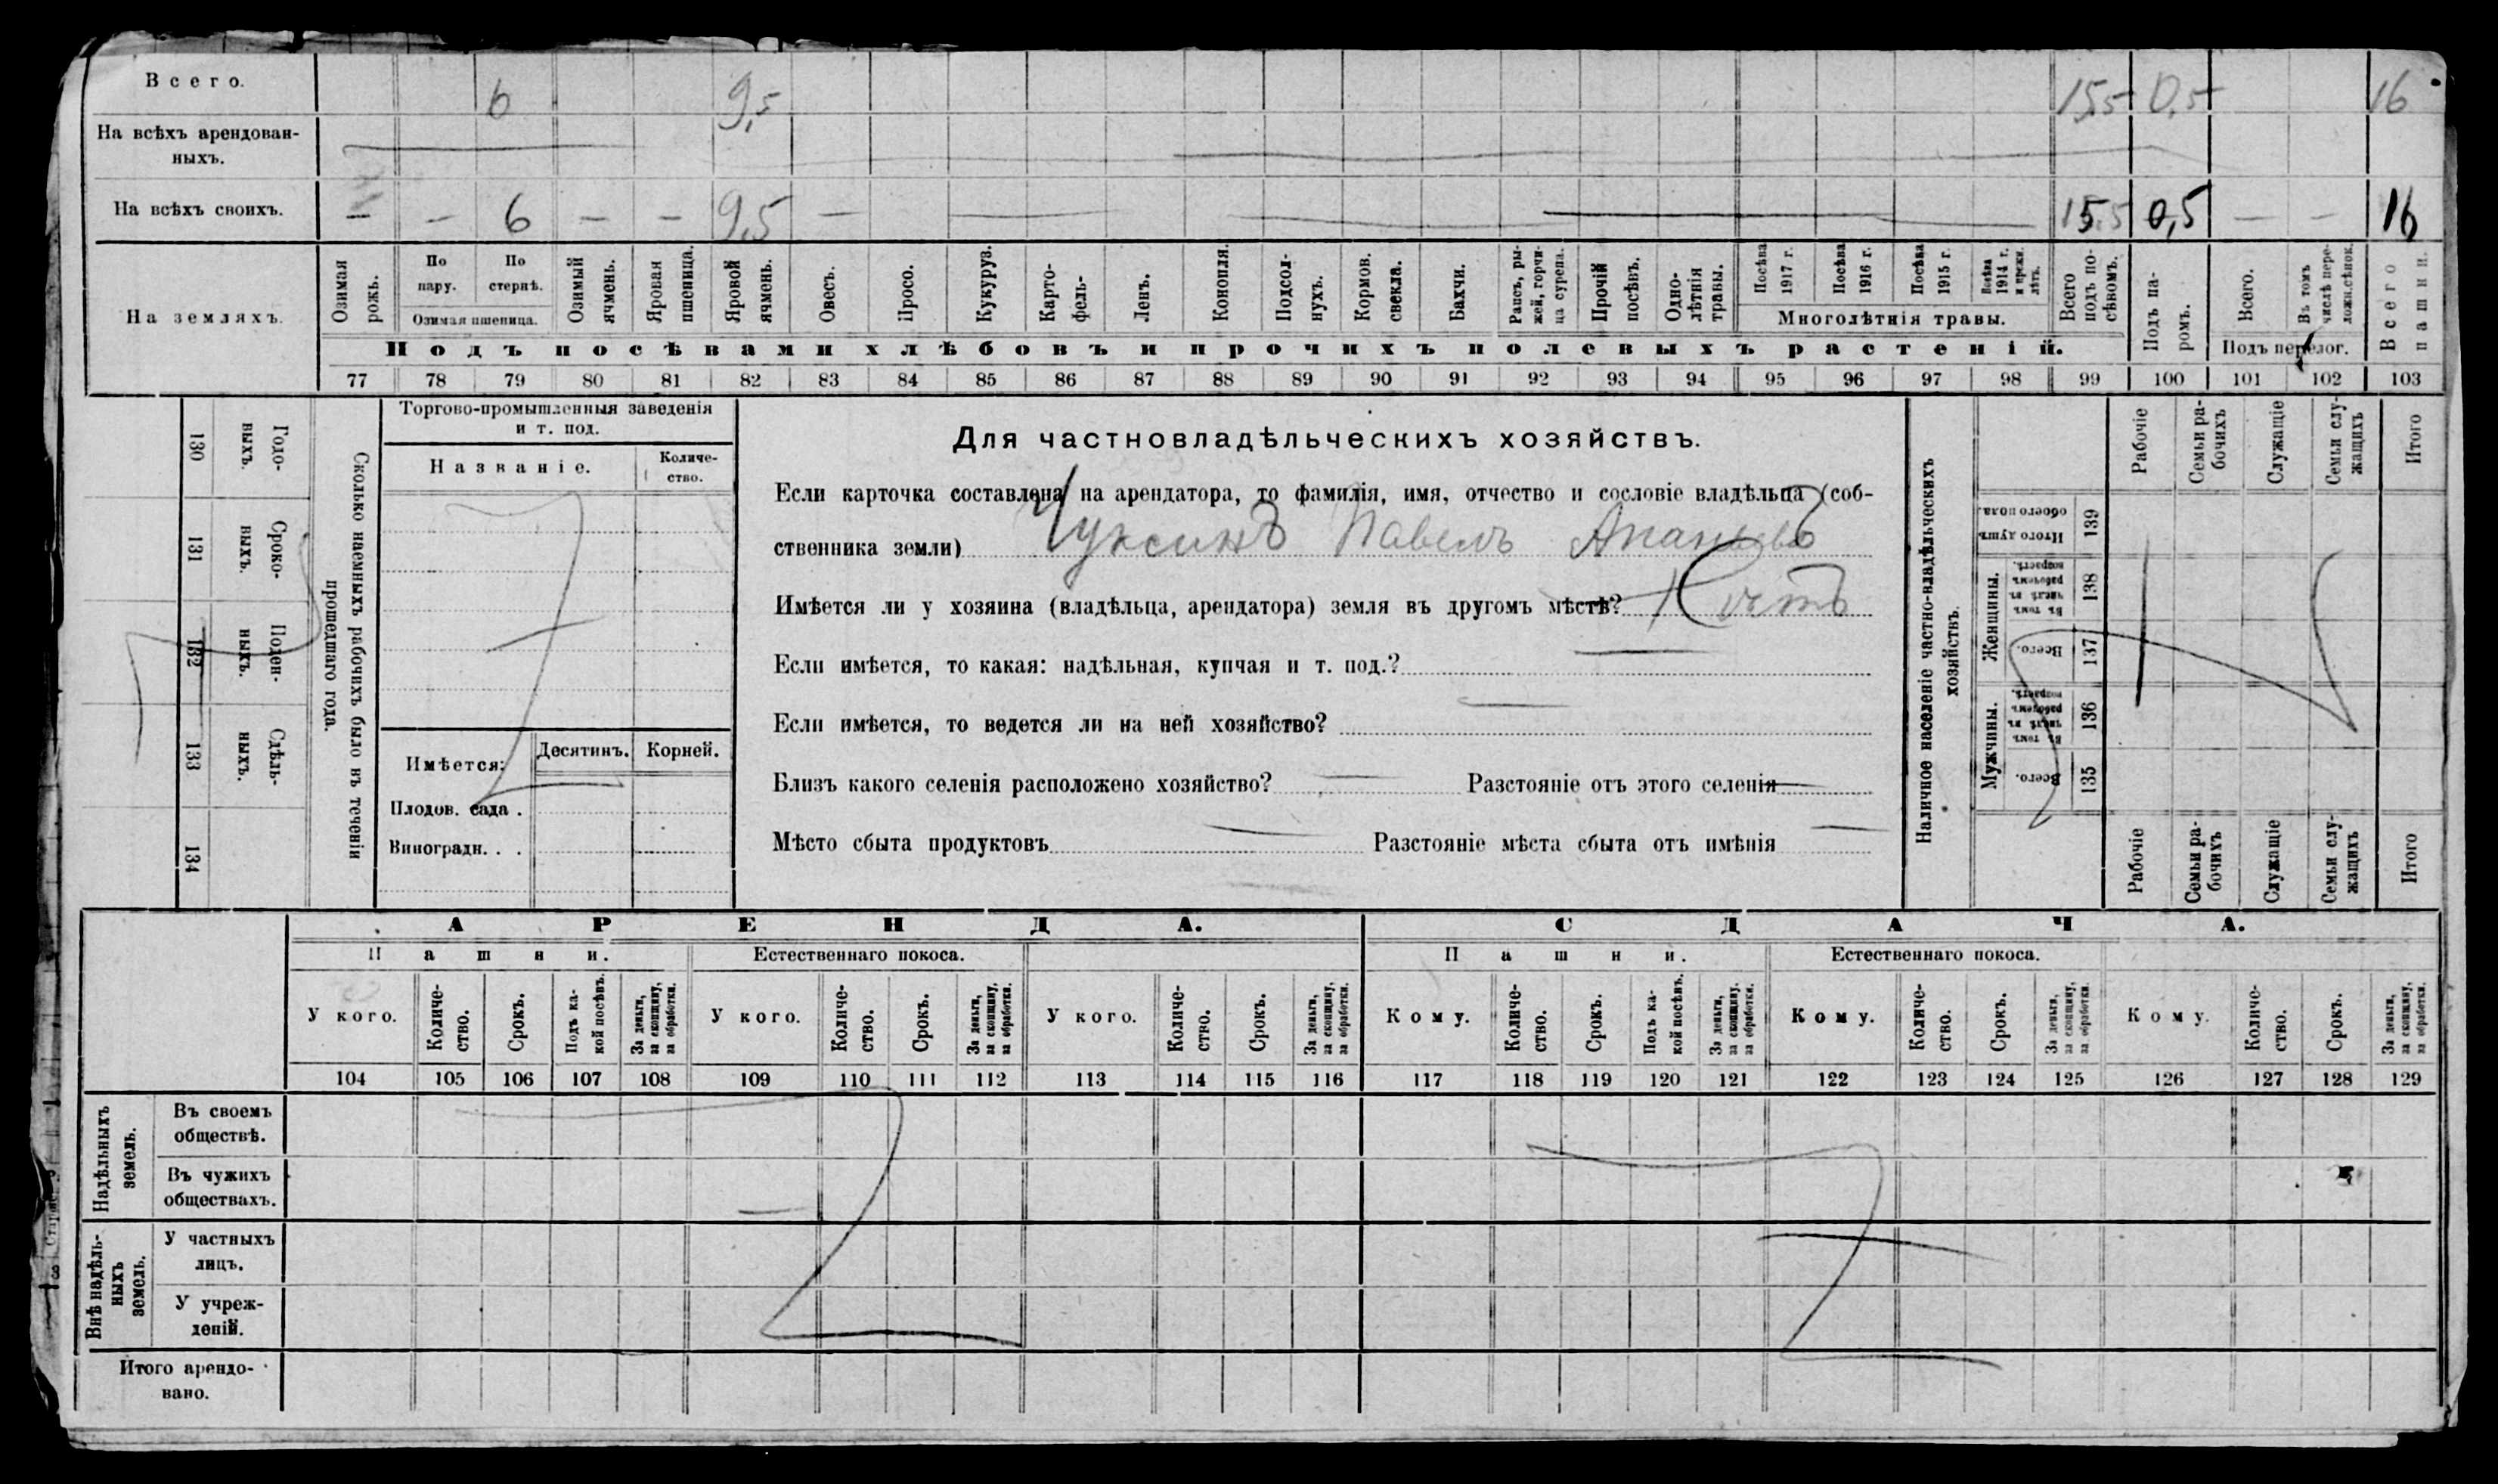 Всего. 6 9,5 15,5 0,5 16
На всѣхъ арендован-
ныхъ.
На всѣхъ своихъ. — — 6 — — 9,5 — 15.5 0,5 — — 16
На земляхъ.
Озимая рожь.
По пару.
По стернѣ.
Озимая пшеница.
Озимый ячмень.
Яровая пшеница.
Яровой ячмень.
Овесъ.
Просо.
Кукуруз.
Карто-
фель.
Ленъ.
Конопля.
Подсол-
нухъ.
Кормов. свекла.
Бахчи.
Рапсъ, ры-
жей, горчи-
ца сурепа.
Прочій посѣвъ.
Одно-
лѣтнія травы.
Посѣва 1917 г.
Посѣва 1916 г.
Посѣва 1915 г.
Посѣва 1914 г. и прежн. лѣтъ.
Многолѣтнія травы.
Всего подъ по-
сѣвомъ.
Подъ посѣвами хлѣбовъ и прочихъ полевыхъ растеній.
Подъ па-
ромъ.
Всего.
Въ томъ числѣ пере-
ложн.сѣнок.
Подъ перелог.
Всего пашни.
77 78 79 80 81 82 83 84 85 86 87 88 89 90 91 92 93 94 95 96 97 98 99 100 101 102 103
130 Годо-
выхъ.
131 Сроко-
ныхъ.
132 Поден-
ныхъ.
133 Сдѣль-
ныхъ.
134
Сколько наемныхъ рабочихъ было въ теченіи
прошедшаго года.
Торгово-промышленныя заведенія
и т. под.
Названіе.
Количе-
ство.
Имѣется:
Десятинъ. Корней.
Плодов. сада .
Виноградн. . .
Для частновладѣльческихъ хозяйствъ.
Если карточка составлена на арендатора, то фамилія, имя, отчество и сословіе владѣльца (соб-
ственника земли) Чуксинъ Павелъ Ананьевъ
Имѣется ли у хозяина (владѣльца, арендатора) земля въ другомъ мѣстѣ? Нѣтъ
Если имѣется, то какая: надѣльная, купчая и т. под.?
Если имѣется, то ведется ли на ней хозяйство?
Близъ какого селенія расположено хозяйство? Разстояніе отъ этого селенія
Мѣсто сбыта продуктовъ Разстояніе мѣста сбыта отъ имѣнія
Наличное населеніе частно-владѣльческихъ
хозяйствъ.
Рабочіе
Семьи ра-
бочихъ
Служащіе
Семьи слу-
жащихъ
Итого
Итого душъ обоего пола. 139
Женщины.
Въ томъ числѣ въ рабочемъ возрастѣ. 138
Всего. 137
Мужчины.
Въ томъ числѣ въ рабочемъ возрастѣ. 136
Всего. 135
Рабочіе
Семьи ра-
бочихъ
Служащіе
Семьи слу-
жащихъ
Итого
АРЕНДА. СДАЧА.
Пашни. Естественнаго покоса. Пашни. Естественнаго покоса.
У кого.
Количе-
ство.
Срокъ.
Подъ ка-
кой посѣвъ.
За деньги, за скопщину, за обработки.
У кого.
Количе-
ство.
Срокъ.
За деньги, за скопщину, за обработки.
У кого.
Количе-
ство.
Срокъ.
За деньги, за скопщину, за обработки.
Кому.
Количе-
ство.
Срокъ.
Подъ ка-
кой посѣвъ.
За деньги, за скопщину, за обработки.
Кому.
Количе-
ство.
Срокъ.
За деньги, за скопщину, за обработки.
Кому.
Количе-
ство.
Срокъ.
За деньги, за скопщину, за обработки.
104 105 106 107 108 109 110 111 112 113 114 115 116 117 118 119 120 121 122 123 124 125 126 127 128 129
Надѣльныхъ
земель.
Въ своемъ
обществѣ.
Въ чужихъ
обществахъ.
Внѣ надѣль-
ныхъ
земель.
У частныхъ
лицъ.
У учреж-
деній.
Итого арендо-
вано.